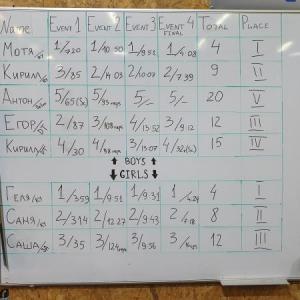 Name Event 1 Event 2 Event 3 Event 4 Final Total Place
Мотя 1/ 1/10:50 1/9:52 1/4:08 4 I
Кирилл 3/85 2/ 2/10:07 2/7:39 9 II
Антон 5/65 5/95 5/- 5/- 20 V
Егор 2/87 3/108 4/13:52 3/9:12 12 III
Кирилл 4/30 4/98 3/13:07 4/ 15 IV
↑ BOYS ↑
↓ GIRLS ↓
Геля 1/359 1/9:51 1/9:31 1/ 4 I
Саня 2/314 2/12:27 2/9:43 2/7:18 8 II
Саша 3/35 3/124 3/9:56 3/ 12 III